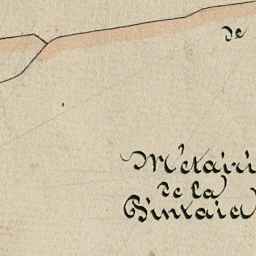 de
Métairi
de la
Bintaie